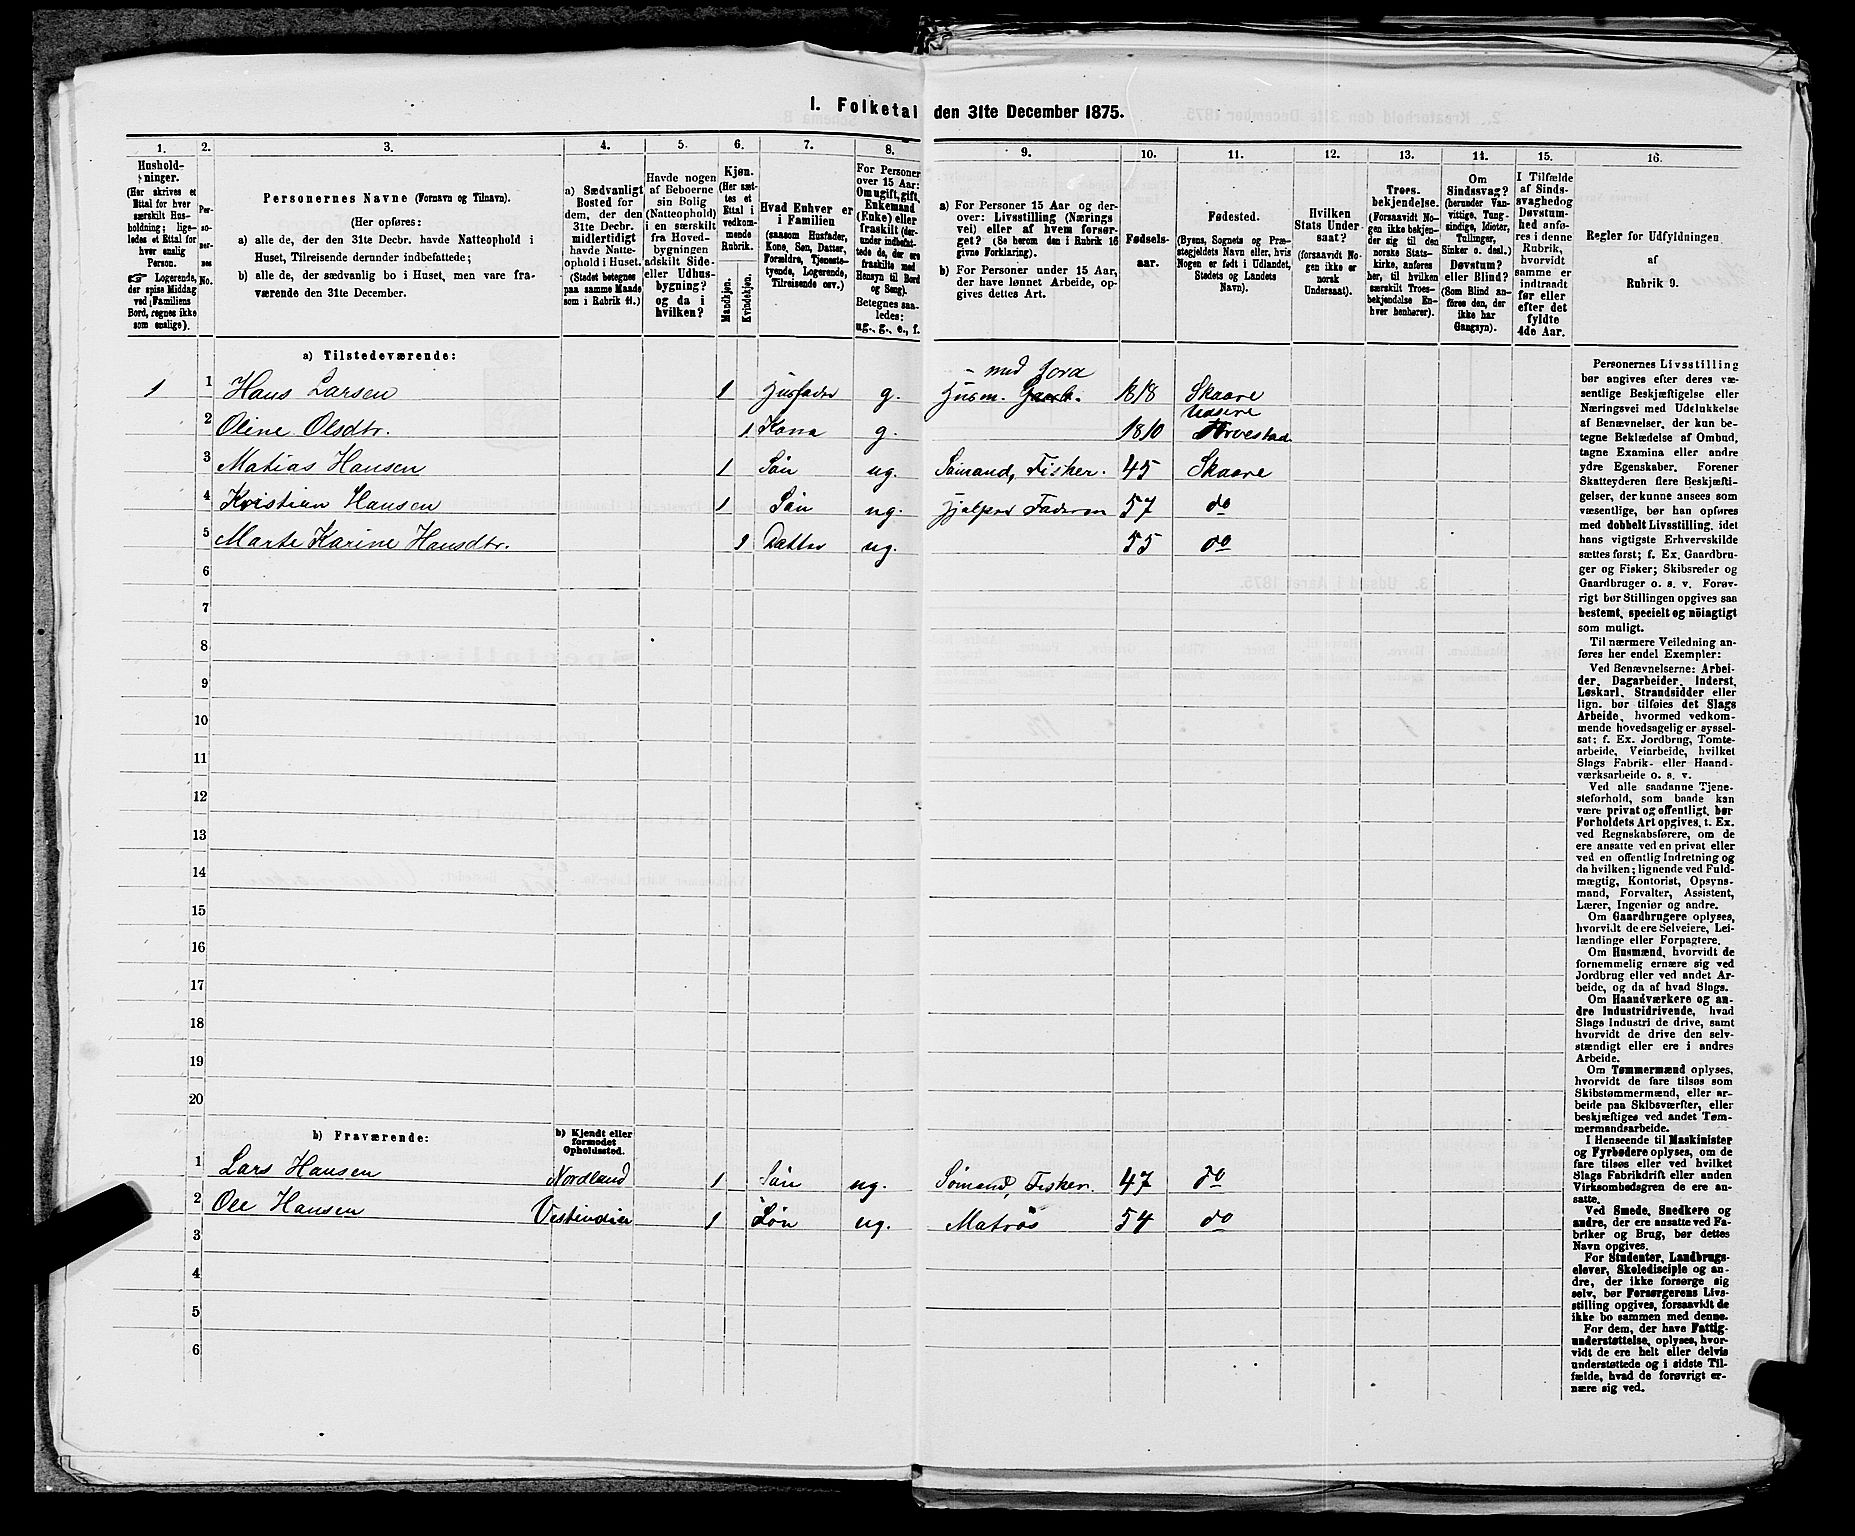 I. Folketal den 31te December 1875.
1. 2. 3. 4. 5. 6. 7. 8. 9. 10. 11. 12. 13. 14. 15. 16.
Hushold-
ninger.
(Her skrives et
Ettal for hver
særskilt Hus-
holdning; lige-
ledes et Ettal for
hver enslig
Person.
☞ Logerende,
der spise Middag
ved Familiens
Bord, regnes ikke
som enslige).
Per-
so-
ner-
nes
No.
Personernes Navne (Fornavn og Tilnavn).
(Her opføres:
a) alle de, der den 31te Decbr. havde Natteophold i
Huset, Tilreisende derunder indbefattede;
b) alle de, der sædvanlig bo i Huset, men vare fra-
værende den 31te December.
a) Sædvanligt
Bosted for
dem, der den
31te Decbr.
midlertidigt
havde Natte-
ophold i Huset.
(Stedet betegnes
paa samme Maade
som i Rubrik 11.)
Havde nogen
af Beboerne
sin Bolig
(Natteophold)
i en særskilt
fra Hoved-
bygningen
adskilt Side-
eller Udhus-
bygning?
og da i
hvilken?
Kjøn.
(Her sæt-
tes et
Ettal i
vedkom-
mende
Rubrik.
Mandkjøn.
Kvindekjøn.
Hvad Enhver er
i Familien
(saasom Husfader,
Kone, Søn, Datter,
Forældre, Tjeneste-
tyende, Logerende,
Tilreisende osv.)
For Personer
over 15 Aar:
Om ugift, gift,
Enkemand
(Enke) eller
fraskilt (der-
under indbefat-
tede de, der ere
fraskilte med
Hensyn til Bord
og Seng).
Betegnes saa-
ledes:
ug., g., e., f.
a) For Personer 15 Aar og der-
over: Livsstilling (Nærings
vei) eller af hvem forsør-
get? (Se herom den i Rubrik 16
givne Forklaring).
b) For Personer under 15 Aar,
der have lønnet Arbeide, op-
gives dettes Art.
Fødsels-
aar.
Fødested.
(Byens, Sognets og Præ-
stegjeldets Navn eller, hvis
Nogen er født i Udlandet,
Stedets og Landets
Navn).
Hvilken
Stats Under-
saat?
(forsaavidt No-
gen ikke er
norsk
Undersaat).
Troes-
bekjendelse.
(Forsaavidt No-
gen ikke bekjen-
der sig til den
norske Stats-
kirke, anføres
her, til hvilken
særskilt Troes-
bekjendelse En-
hver henhører).
Om
Sindssvag?
(herunder Van-
vittige, Tung-
sindige, Idioter,
Tullinger,
Sinker o. desl.)
Døvstum?
eller Blind?
(Som Blind an-
føres den, der
ikke har
Gangsyn).
I Tilfælde
af Sinds-
svaghed og
Døvstum-
hed anfø-
res i denne
Rubrik,
hvorvidt
samme er
indtraadt
før eller
efter det
fyldte
4de Aar.
Regler for Udfyldningen
af
Rubrik 9.
a) Tilstedeværende:
med Jord
1 1 Hans Larsen 1 Husfader g. Husm. 1818 Skaare
Udsire
2 Oline Olsdtr. 1 Kona g. 1810
3 Matias Hansen 1 Søn ug. Sømand, Fisker. 45 Skaare
4 Kristian Hansen 1 Søn ug. Hjælper Faderen 57 do
5 Marte Karine Hansdtr. 1 Datter ug. 55 do
6
7
8
9
10
11
12
13
14
15
16
17
18
19
20
b) Fraværende:
b) Kjendt eller
formodet
Opholdssted.
1 Lars Hansen Nordland 1 Søn ug. Sømand, Fisker. 47 do
2 Ole Hansen Vestindien 1 Søn ug. Matros 54 do
3
4
5
6
Personernes Livsstilling
bør angives efter deres væ-
sentlige Beskjæftigelse eller
Næringsvei med Udelukkelse
af Benævnelser, der kun be-
tegne Beklædelse af Ombud,
tagne Examina eller andre
ydre Egenskaber. Forener
Skatteyderen flere Beskjæfti-
gelser, der kunne ansees som
væsentlige, bør han opføres
med dobbelt Livsstilling, idet
hans vigtigste Erhvervskilde
sættes først; f. Ex. Gaardbru-
ger og Fisker; Skibsreder og
Gaardbruger o. s. v. Forøv-
rigt bør Stillingen opgives saa
bestemt, specielt og nöiagtigt
som muligt.
Til nærmere Veiledning an-
føres her endel Exempler:
Ved Benævnelserne: Arbei-
der, Dagarbeider, Inderst,
Løskarl, Strandsidder eller
lign. bør tilføies det Slags
Arbeide, hvormed vedkom-
mende hovedsagelig er syssel-
sat; f. Ex. Jordbrug, Tomte-
arbeide, Veiarbeide, hvilket
Slags Fabrik- eller Haand-
værksarbeide o. s. v.
Ved alle saadanne Tjene-
steforhold, som baade kan
være privat og offentligt, bør
Forholdets Art opgives, t. Ex.
ved Regnskabsførere, om de
ere ansatte ved en privat eller
ved en offentlig Indretning og
da hvilken; lignende ved Fuld-
mægtig, Kontorist, Opsyns-
mand, Forvalter, Assistent,
Lærer, Ingeniør og andre.
Om Gaardbrugere oplyses,
hvorvidt de ere Selveiere, Lei-
lændinge eller Forpagtere.
Om Husmænd, hvorvidt de
fornemmelig ernære sig ved
Jordbrug eller ved andet Ar-
beide, og da af hvad Slags.
Om Haandværkere og an-
dre Industridrivende, hvad
Slags Industri de drive, samt
hvorvidt de drive den selv-
stændigt eller ere i andres
Arbeide.
Om Tømmermænd oplyses,
hvorvidt de fare tilsøs som
Skibstømmermænd, eller ar-
beide paa Skibsværfter, eller
beskjæftiges ved andet Tøm-
mermandsarbeide.
I Henseende til Maskinister
og Fyrbødere oplyses, om de
fare tilsøs eller ved hvilket
Slags Fabrikdrift eller anden
Virksomhedsgren de ere an-
satte.
Ved Smede, Snedkere og
andre, der ere ansatte ved Fa-
briker og Brug, bør dettes
Navn opgives.
For Studenter, Landbrugs-
elever, Skoledisciple og an-
dre, der ikke forsørge sig
selv, bør Forsørgerens Livs-
stilling opgives, forsaavidt de
ikke bo sammen med denne.
For dem, der have Fattig-
understøttelse, oplyses, hvor-
vidt de ere helt eller delvis
understøttede og i sidste Til-
fælde, hvad de forøvrigt er-
nære sig ved.